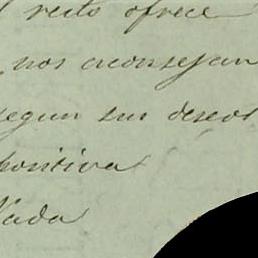 resto ofrece
nos aconsejan
segun sus deseos
positiva